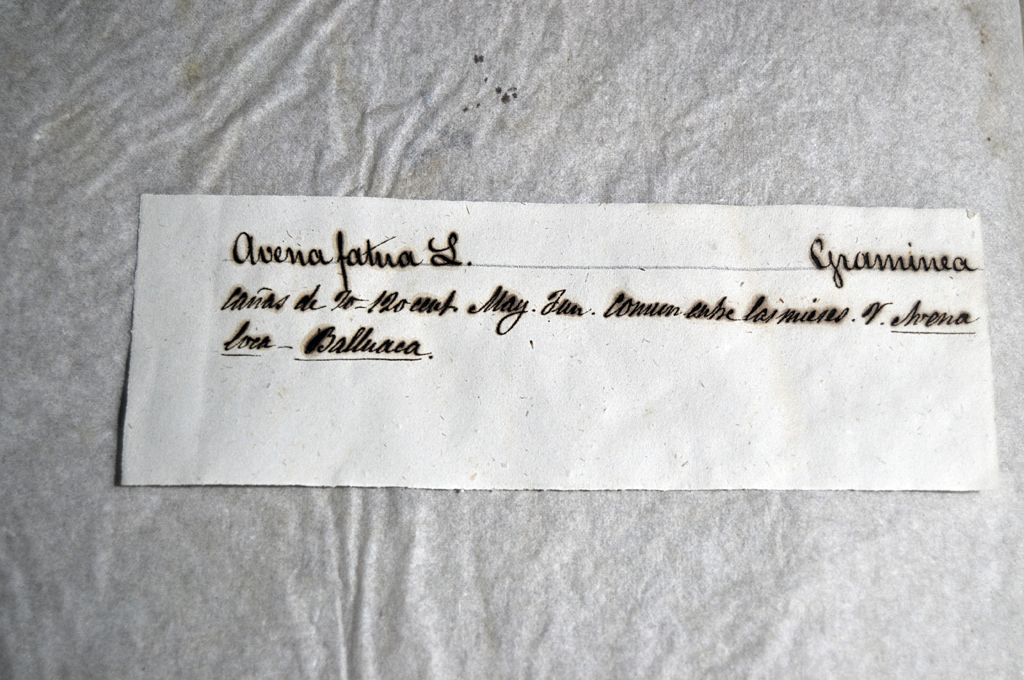 Avena fatua L. Graminea
Cañas de 70-120 cent. May. Jun. Comun entre las mieses. V. Avena
loca - Balluaca.